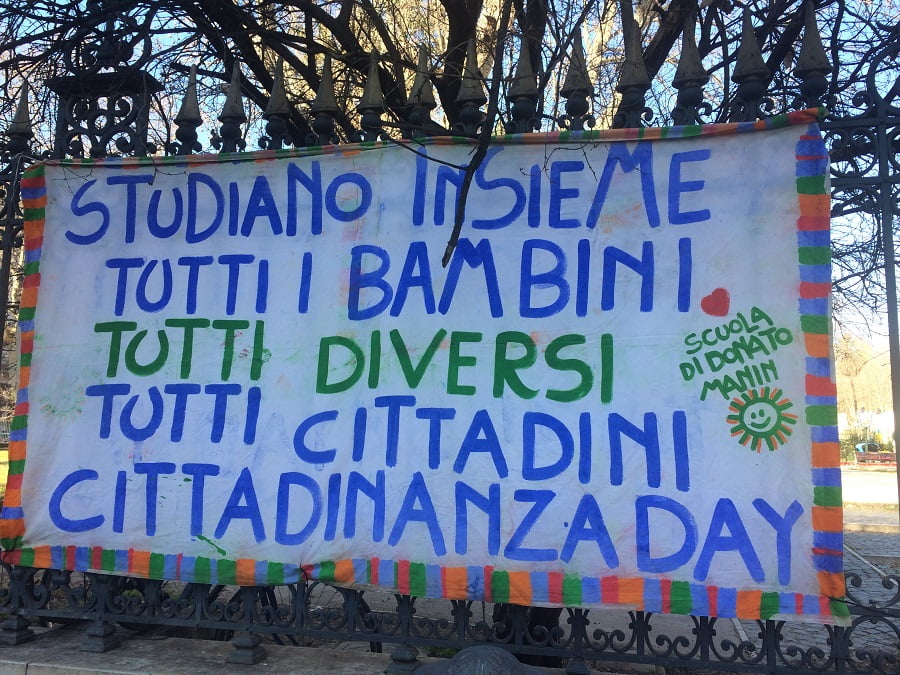 STUDIANO INSIEME
TUTTI I BAMBINI.
TUTTI DIVERSI
TUTTI CITTADINI
CITTADINANZA DAY
SCUOLA
DI DONATO
MANIN